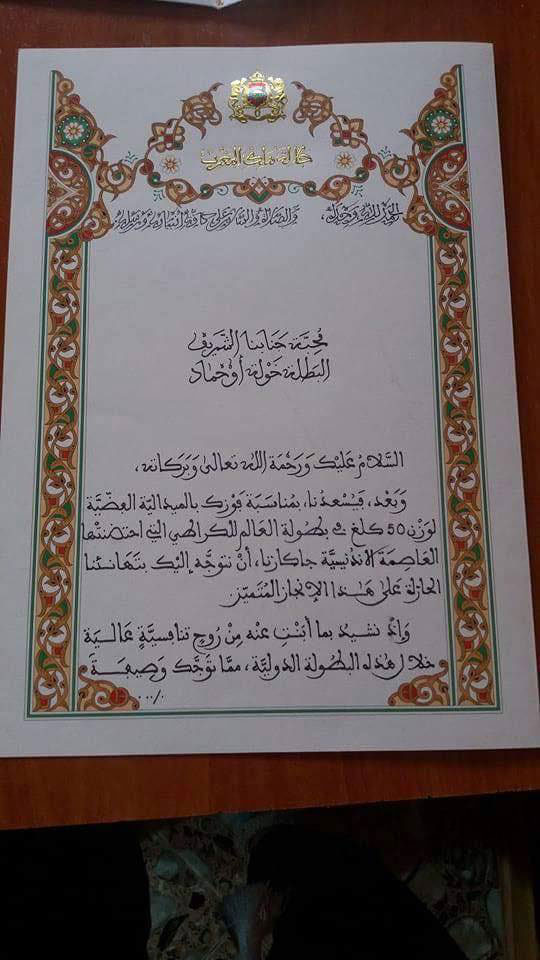 جلالة ملك المغرب
الحمد لله وحده، والصلاة والسلام على كافة أنبيائه ورسله
مُحِبَّة جَنَابنَا الشَّرِيف
البَطَلة خَوْلة أُوحْمَاد
السَّلَامُ عَلَيْك وَرَحْمَة الله تعالى وَبَرَكَاته،
وَبَعْد، فَيُسْعِدُنا، بمُناسَبَة فَوْزك بالميدالية الفضِّيَّة
لوَزن 50 كلغ في بطولة العالم للكراطي التي احتضنتها
العَاصِمَة الأندنيسِيَّة جاكارتا، أنْ نتوَجَّه إليْك بتَهَانئنا
الحارَّة عَلى هَذا الإنجاز المُتَميِّز.
وَإذ نشيدُ بما أبَنْتِ عنه مِنْ رُوحٍ تنافسِيَّةٍ عَالية
خلال هذه البطولة الدوليَّة، ممَّا توَّجَك وَصِيفَة
٠٠٠/٠